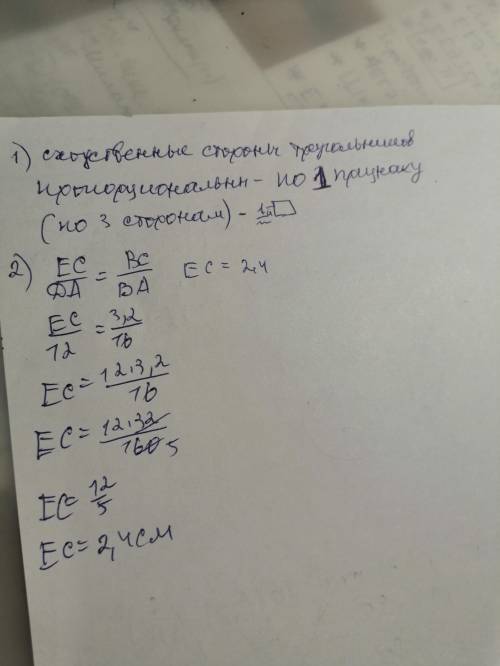 1) сходственные стороны треугольников
пропорциональн - по 1 признаку
(по 3 сторонам) -
2) EC/DA = BC/BA EC = 2,4
EC/12 = 3,2/16
EC = 12·3,2/16
EC = 12·32/160 5
EC = 12/5
EC = 2,4 см